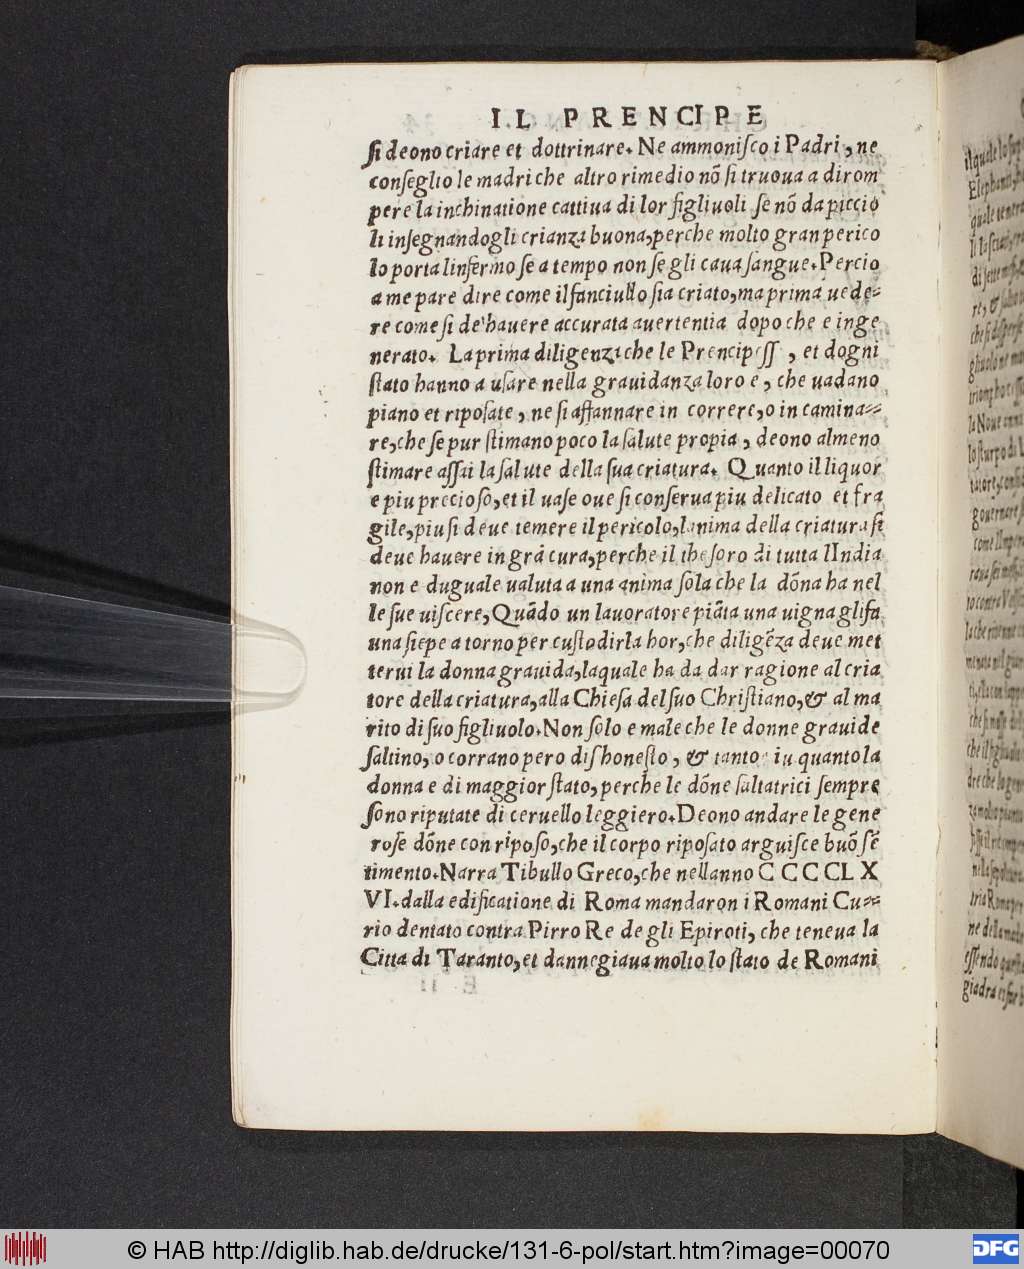 IL PRENCIPE
ſi deono criare et dottrinare. Ne ammoniſco i Padri, ne
conſeglio le madri che altro rimedio nõ ſi truoua a dirom
pere la inchinatione cattiua di lor figliuoli ſe nõ da piccio
li inſegnandogli crianza buona, perche molto gran perico
lo porta linfermo ſe a tempo non ſe gli caua ſangue. Percio
a me pare dire come il fanciullo ſia criato, ma prima uede-
re come ſi de hauere accurata auertentia dopo che e inge
nerato. La prima diligenza che le Prencipeſſ , et dogni
ſtato hanno a uſare nella grauidanza loro e, che uadano
piano et ripoſate, ne ſi affannare in correre, o in camina-
re, che ſe pur ſtimano poco la ſalute propia, deono almeno
ſtimare aſſai la ſalute della ſua criatura. Quanto il liquor
e piu precioſo, et il uaſe oue ſi conſerua piu delicato et fra
gile, piu ſi deue temere il pericolo, lanima della criatura ſi
deue hauere in grã cura, perche il theſoro di tutta lIndia
non e duguale ualuta a una anima ſola che la dõna ha nel
le ſue uiſcere, Quãdo un lauoratore piãta una uigna gli fa
una ſiepe a torno per cuſtodirla hor, che diligẽza deue met
terui la donna grauida, laquale ha da dar ragione al cria
tore della criatura, alla Chieſa del ſuo Chriſtiano, & al ma
rito di ſuo figliuolo. Non ſolo e male che le donne grauide
ſaltino, o corrano pero diſhoneſto, & tanto iu quanto la
donna e di maggior ſtato, perche le dõne ſaltatrici ſempre
ſono riputate di ceruello leggiero. Deono andare le gene
roſe dõne con ripoſo, che il corpo ripoſato arguiſce buõ ſẽ
timento. Narra Tibullo Greco, che nellanno CCCCLX
VI. dalla edificatione di Roma mandaron i Romani Cu-
rio dentato contra Pirro Re de gli Epiroti, che teneua la
Citta di Taranto, et dannegiaua molto lo ſtato de Romani
il quale lo
Elephanti,
© HAB http://diglib.hab.de/drucke/131-6-pol/start.htm?image=00070
DFG